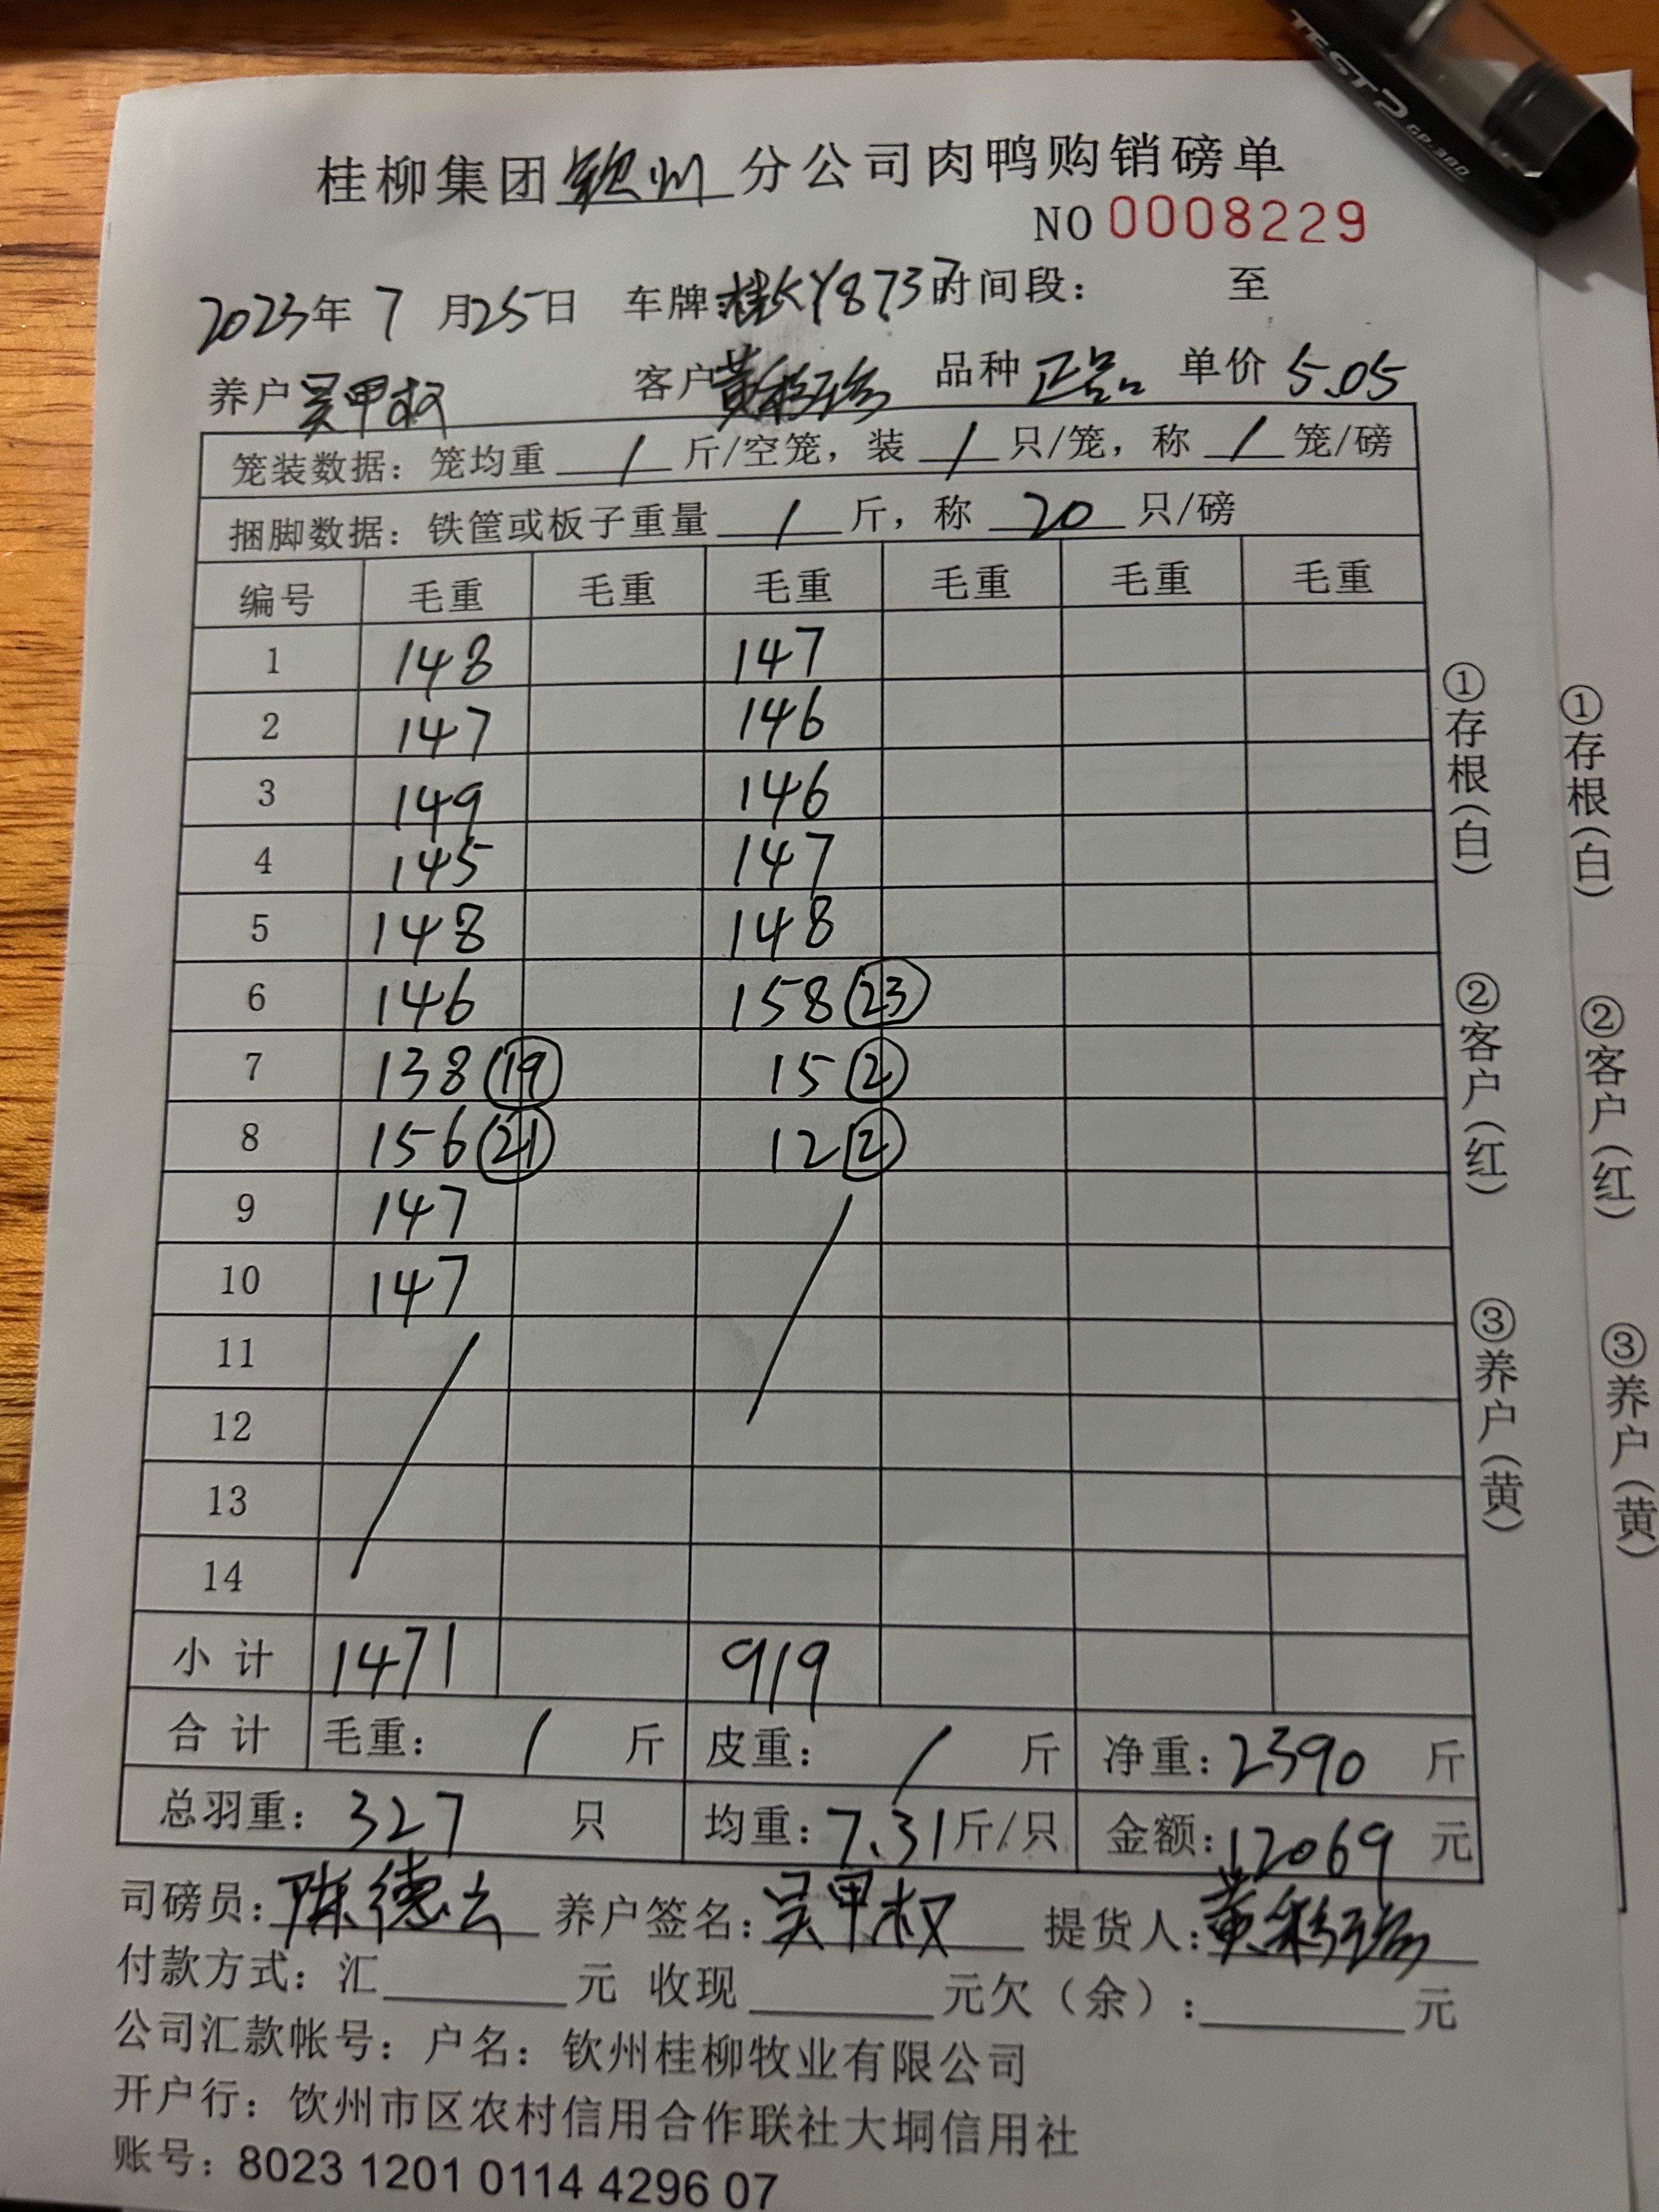 桂柳集团钦州分公司肉鸭购销磅单
NO 0008229
2023年 7 月25日 车牌:桂KY8737时间段： 至
养户吴甲权 客户黄彩珍 品种 正品 单价 5.05
笼装数据：笼均重 / 斤/空笼，装 / 只/笼，称 / 笼/磅
捆脚数据：铁筐或板子重量 / 斤，称 20 只/磅
编号 毛重 毛重 毛重 毛重 毛重 毛重
1 148 147
2 147 146
3 149 146
4 145 147
5 148 148
6 146 158 (23)
7 138 (19) 15 (2)
8 156 (21) 12 (2)
9 147
10 147
11
12
13
14
小 计 1471 919
合 计 毛重： / 斤 皮重： / 斤 净重：2390 斤
总羽重：327 只 均重：7.31斤/只 金额：12069 元
司磅员：陈德云 养户签名：吴甲权 提货人：黄彩珍
付款方式：汇 元 收现 元欠（余）： 元
公司汇款帐号：户名：钦州桂柳牧业有限公司
开户行：饮州市区农村信用合作联社大垌信用社
账号：8023 1201 0114 4296 07
①存根(白)
②客户(红)
③养户(黄)
①存根(白)
②客户(红)
③养户(黄)
TEST2 GP-380